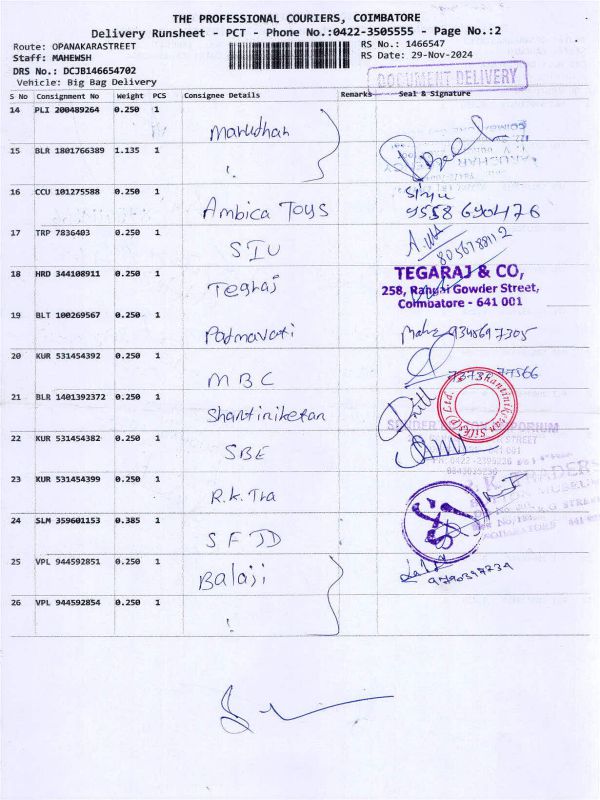 THE PROFESSIONAL COURIERS, COIMBATORE
Delivery Runsheet - PCT - Phone No.:0422-3505555 - Page No.:2
Route: OPANAKARASTREET
RS No.: 1466547
Staff: MAHEWSH
RS Date: 29-Nov-2024
DRS No.: DCJB146654702
Vehicle: Big Bag Delivery
DOCUMENT DELIVERY
S No Consignment No Weight PCS Consignee Details Remarks Seal & Signature
14 PLI 200489264 0.250 1
Marudhar
15 BLR 1801766389 1.135 1
16 CCU 101275588 0.250 1
Ambica Toys
9558690476
17 TRP 7836403 0.250 1
SIU
8056788112
18 HRD 344108911 0.250 1
Tegraj
TEGARAJ & CO,
258, Rangai Gowder Street,
Coimbatore - 641 001
19 BLT 100269567 0.250 1
Padmavati
20 KUR 531454392 0.250 1
MBC
21 BLR 1401392372 0.250 1
Shantiniketan
Shantiniketan Silks (P) Ltd.
22 KUR 531454382 0.250 1
SBE
23 KUR 531454399 0.250 1
R.K. Tra
24 SLM 359601153 0.385 1
SFJD
25 VPL 944592851 0.250 1
Balaji
26 VPL 944592854 0.250 1